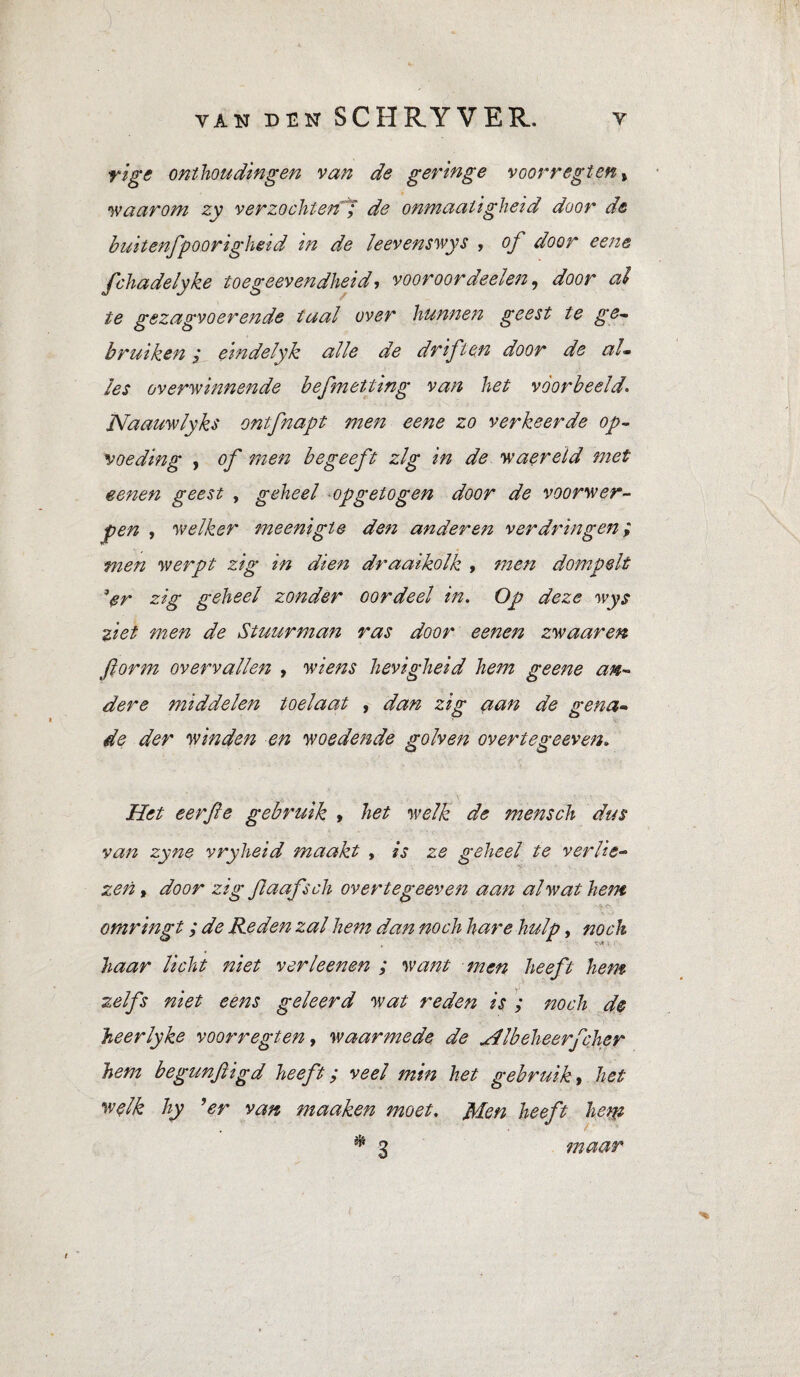 VAN DEN SCHRYVER. V
rige onthoudingen van de geringe voorregten,
waarom zy verzochten; de onmaatigheid door de
buitenſpoorigheid in de leevenswys, of door eene
ſchadelyke toegeevendheid, vooroordeelen, door al
te gezagvoerende taal over hunnen geest te ge-
bruiken; eindelyk alle de driften door de al-
les overwinnende beſmetting van het voorbeeld.
Naauwlyks ontſnapt men eene zo verkeerde op-
voeding, of men begeeft zig in de waereld met
eenen geest, geheel opgetogen door de voorwer-
pen, welker meenigte den anderen verdringen;
men werpt zig in dien draaikolk, men dompelt
'er zig geheel zonder oordeel in. Op deze wys
ziet men de Stuurman ras door eenen zwaaren
ſtorm overvallen, wiens hevigheid hem geene an-
dere middelen toelaat, dan zig aan de gena-
de der winden en woedende golven overtegeeven.
Het eerſte gebruik, het welk de mensch dus
van zyne vryheid maakt, is ze geheel te verlie-
zen, door zig ſlaafsch overtegeeven aan alwat hem
omringt; de Reden zal hem dan noch hare hulp, noch
haar licht niet verleenen; want men heeft hem
zelfs niet eens geleerd wat reden is; noch de
heerlyke voorregten, waarmede de Albeheerſcher
hem begunſtigd heeft; veel min het gebruik, het
welk hy 'er van maaken moet. Men heeft hem
* 3 maar